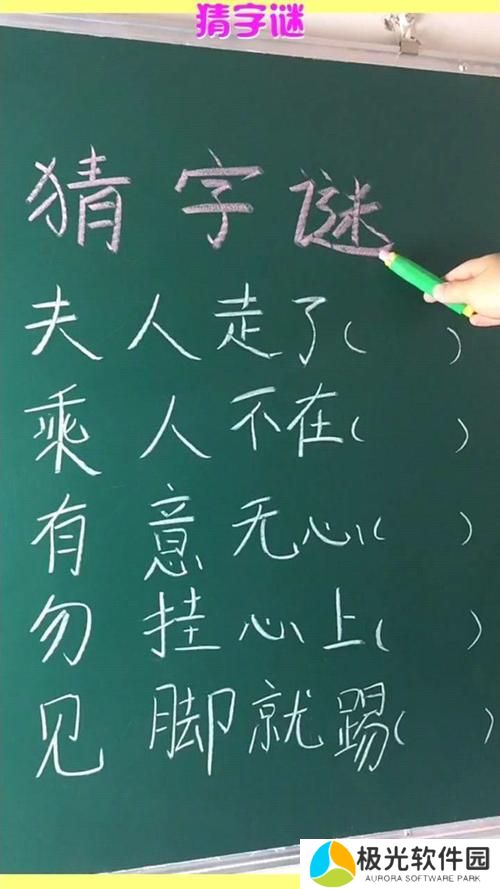 猜字谜
猜字谜
夫人走了( )
乘人不在( )
有意无心( )
勿挂心上( )
见脚就踢( )
极光软件园
AURORA SOFTWARE PARK